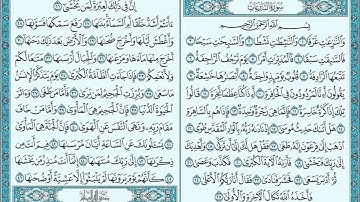 سُورَةُ النَّازِعَاتِ
بِسْمِ اللَّهِ الرَّحْمَٰنِ الرَّحِيمِ
وَالنَّٰزِعَٰتِ غَرْقًا ۝١ وَالنَّٰشِطَٰتِ نَشْطًا ۝٢ وَالسَّٰبِحَٰتِ سَبْحًا ۝٣
فَالسَّٰبِقَٰتِ سَبْقًا ۝٤ فَالْمُدَبِّرَٰتِ أَمْرًا ۝٥ يَوْمَ تَرْجُفُ الرَّاجِفَةُ ۝٦
تَتْبَعُهَا الرَّادِفَةُ ۝٧ قُلُوبٌ يَوْمَئِذٍ وَاجِفَةٌ ۝٨ أَبْصَٰرُهَا خَٰشِعَةٌ ۝٩
يَقُولُونَ أَءِنَّا لَمَرْدُودُونَ فِي الْحَافِرَةِ ۝١٠ أَءِذَا كُنَّا عِظَٰمًا نَّخِرَةً ۝١١ قَالُوا
تِلْكَ إِذًا كَرَّةٌ خَاسِرَةٌ ۝١٢ فَإِنَّمَا هِيَ زَجْرَةٌ وَٰحِدَةٌ ۝١٣ فَإِذَا هُم بِالسَّاهِرَةِ ۝١٤
هَلْ أَتَىٰكَ حَدِيثُ مُوسَىٰ ۝١٥ إِذْ نَادَىٰهُ رَبُّهُ بِالْوَادِ الْمُقَدَّسِ طُوًى ۝١٦
اذْهَبْ إِلَىٰ فِرْعَوْنَ إِنَّهُ طَغَىٰ ۝١٧ فَقُلْ هَل لَّكَ إِلَىٰ أَن تَزَكَّىٰ ۝١٨ وَأَهْدِيَكَ
إِلَىٰ رَبِّكَ فَتَخْشَىٰ ۝١٩ فَأَرَىٰهُ الْآيَةَ الْكُبْرَىٰ ۝٢٠ فَكَذَّبَ وَعَصَىٰ ۝٢١
ثُمَّ أَدْبَرَ يَسْعَىٰ ۝٢٢ فَحَشَرَ فَنَادَىٰ ۝٢٣ فَقَالَ أَنَا رَبُّكُمُ الْأَعْلَىٰ ۝٢٤
فَأَخَذَهُ اللَّهُ نَكَالَ الْآخِرَةِ وَالْأُولَىٰ ۝٢٥
إِنَّ فِي ذَٰلِكَ لَعِبْرَةً لِّمَن يَخْشَىٰ ۝٢٦
ءَأَنتُمْ أَشَدُّ خَلْقًا أَمِ السَّمَاءُ بَنَىٰهَا ۝٢٧ رَفَعَ سَمْكَهَا فَسَوَّىٰهَا ۝٢٨
وَأَغْطَشَ لَيْلَهَا وَأَخْرَجَ ضُحَىٰهَا ۝٢٩ وَالْأَرْضَ بَعْدَ ذَٰلِكَ دَحَىٰهَا ۝٣٠
أَخْرَجَ مِنْهَا مَاءَهَا وَمَرْعَىٰهَا ۝٣١ وَالْجِبَالَ أَرْسَىٰهَا ۝٣٢ مَتَٰعًا لَّكُمْ
وَلِأَنْعَٰمِكُمْ ۝٣٣ فَإِذَا جَاءَتِ الطَّامَّةُ الْكُبْرَىٰ ۝٣٤ يَوْمَ يَتَذَكَّرُ الْإِنسَٰنُ
مَا سَعَىٰ ۝٣٥ وَبُرِّزَتِ الْجَحِيمُ لِمَن يَرَىٰ ۝٣٦ فَأَمَّا مَن طَغَىٰ ۝٣٧ وَءَاثَرَ
الْحَيَوٰةَ الدُّنْيَا ۝٣٨ فَإِنَّ الْجَحِيمَ هِيَ الْمَأْوَىٰ ۝٣٩ وَأَمَّا مَنْ خَافَ
مَقَامَ رَبِّهِ وَنَهَى النَّفْسَ عَنِ الْهَوَىٰ ۝٤٠ فَإِنَّ الْجَنَّةَ هِيَ الْمَأْوَىٰ ۝٤١
يَسْـَٔلُونَكَ عَنِ السَّاعَةِ أَيَّانَ مُرْسَىٰهَا ۝٤٢ فِيمَ أَنتَ مِن
ذِكْرَىٰهَا ۝٤٣ إِلَىٰ رَبِّكَ مُنتَهَىٰهَا ۝٤٤ إِنَّمَا أَنتَ مُنذِرُ مَن يَخْشَىٰهَا ۝٤٥
كَأَنَّهُمْ يَوْمَ يَرَوْنَهَا لَمْ يَلْبَثُوا إِلَّا عَشِيَّةً أَوْ ضُحَىٰهَا ۝٤٦